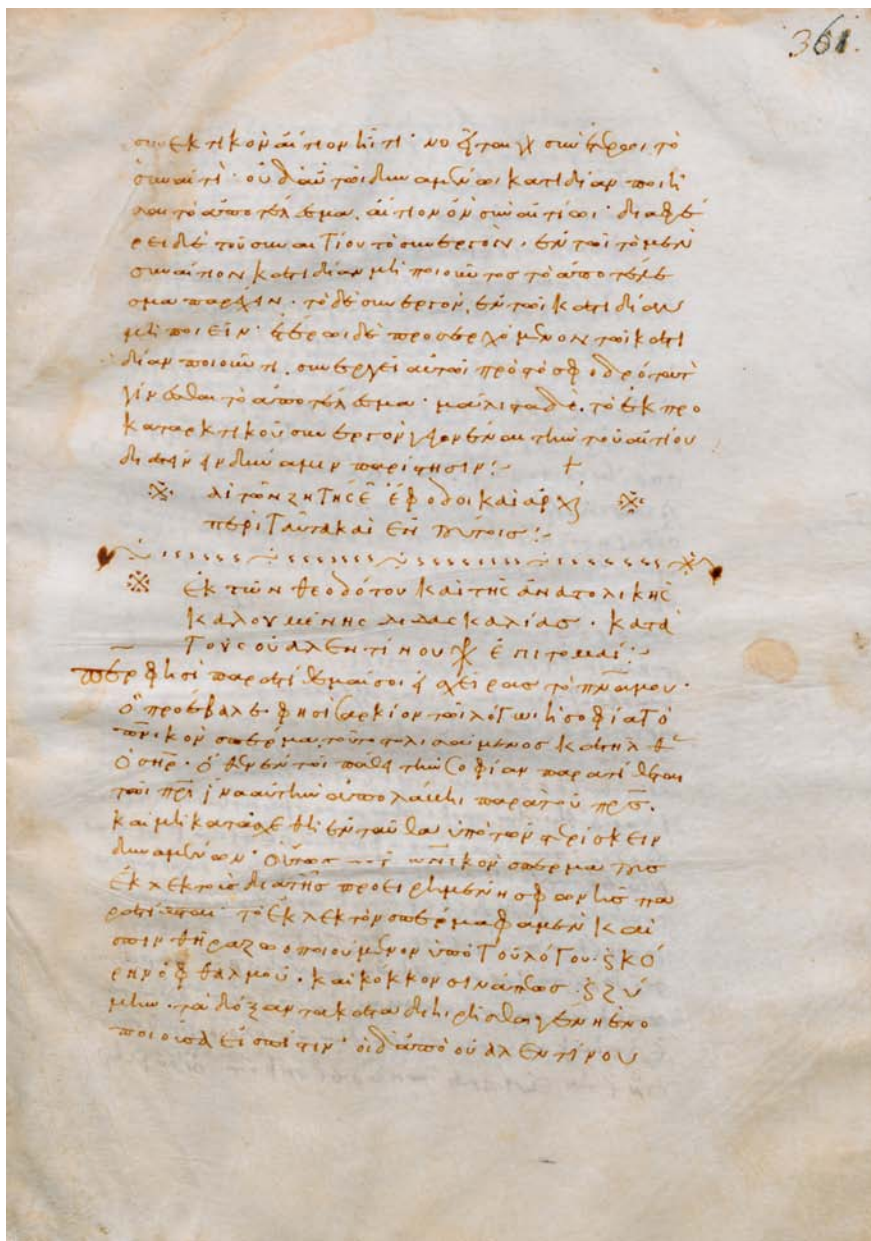 361.
συνεκτικὸν αἴτιον ἤ τι· νοεῖται γὰρ σὺν ἑτέρωι τὸ
συναίτι· οὐδ' αὐτῶι δυναμένωι κατ' ἰδίαν ποιῆ
σαι τὸ ἀποτέλεσμα. αἴτιον ὂν σὺν αἰτίωι· διαφέ
ρει δὲ τοῦ συναιτίου τὸ συνεργὸν, ἐν τῶι τὸ μὲν
συναίτιον κατ' ἰδίαν μὴ ποιοῦντος τὸ ἀποτέλε
σμα παρέχειν· τὸ δὲ συνεργὸν, ἐν τῶι κατ' ἰδίαν
μὴ ποιεῖν· ἑτέρωι δὲ προσερχόμενον τῶι κατ'
ἰδίαν ποιοῦντι. συνεργεῖ αὐτῶι πρὸς τὸ σφοδρότατ
γίνεσθαι τὸ ἀποτέλεσμα· μάλιστα δὲ. τὸ ἐκ προ
καταρκτικοῦ συνεργὸν γεγονέναι τὴν τοῦ αἰτίου
διατείνειν δύναμιν παρίστησιν :-
αἱ τῶν ζητήσε ἔφοδοι καὶ ἀρχ
περὶ ταῦτα καὶ ἐν τούτοις :-
ἐκ τῶν θεοδότου καὶ τῆς ἀνατολικῆς
καλουμένης διδασκαλίας· κατὰ
τοὺς οὐαλεντίνου χρ ἐπιτομαί :-
περ φησὶ παρατίθεμαί σοι εἰς χεῖρας τὸ πνα μου·
ὃ προέβαλε φησὶ σαρκίον τῶι λόγωι ἡ σοφία τὸ
πνικὸν σπέρμα. τοῦτο στολισάμενος κατῆλθε
ὁ σηρ· ὅθεν ἐν τῶι πάθει τὴν σοφίαν παρατίθεται
τῶι πρι ἵνα αὐτὴν ἀπολάβηι παρὰ τοῦ πρς.
καὶ μὴ κατασχεθῆι ἐνταῦθα ὑπὸ τῶν στερίσκειν
δυναμένων· οὕτως πνικὸν σπέρμα τοὺς
ἐκλεκτοὺς διὰ τῆς προειρημένης φωνῆς πα
ρατίθεται· τὸ ἐκλεκτὸν σπέρμα φαμὲν καὶ
σπινθῆρα ζωοποιούμενον ὑπὸ τοῦ λόγου· ϗ κό
ρην ὀφθαλμοῦ· καὶ κόκκον σινάπεως· ϗ ζύ
μην· τὰ δόξαντα καταδιηιρῆσθαι γένη ἑνο
ποιοῦσα εἰς πίστιν· οἱ δ' ἀπὸ οὐαλεντίνου